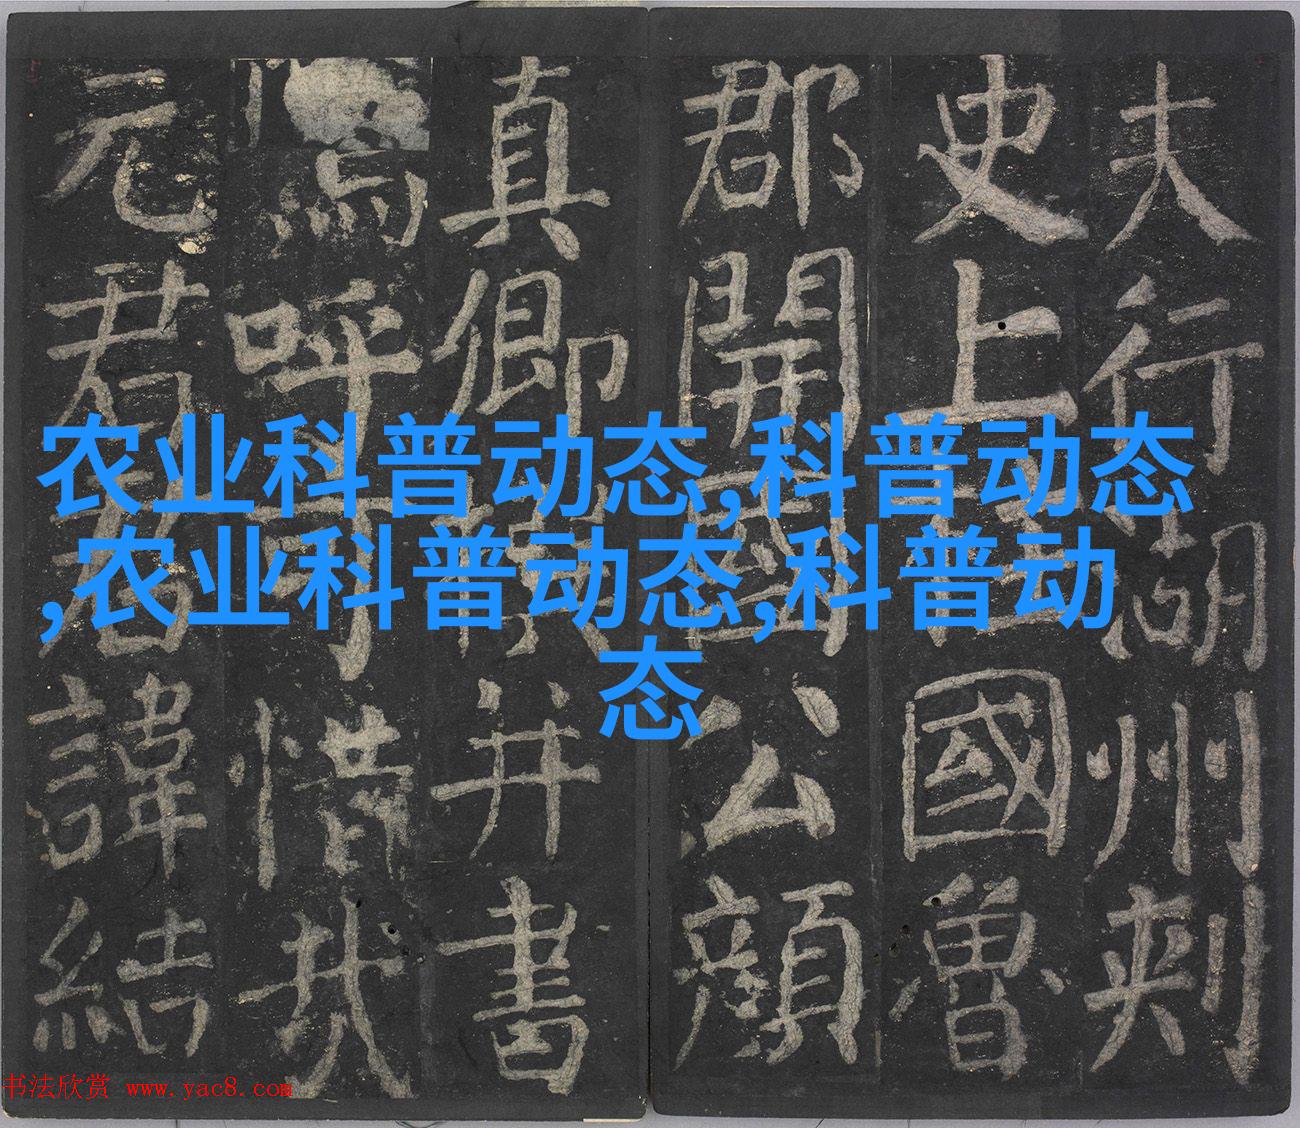 夫行湖州刺
史上柱國魯
郡開國公顏
真卿撰并書
嗚呼可惜哉
元君君諱結
农业科普动态,科普动态
,农业科普动态,科普动
态
书法欣赏 www.yac8.com